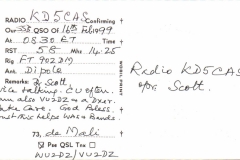 RADIO KD5CAS Confirming
Our SSB QSO Of 16th Feb 1999
At. 0830 ET Time
RST 58 Mhz 14.25
Rig FT 902DM
Ant. Dipole
Remarks Scott.
talking. CU often.
am also VU2DZ a Dxer.
Take Care. God Bless.
this helps WAS & Bands
73, de Mali
Pse QSL Tnx
WU2DZ/VU2DZ
Radio KD5CAS
opr. Scott.